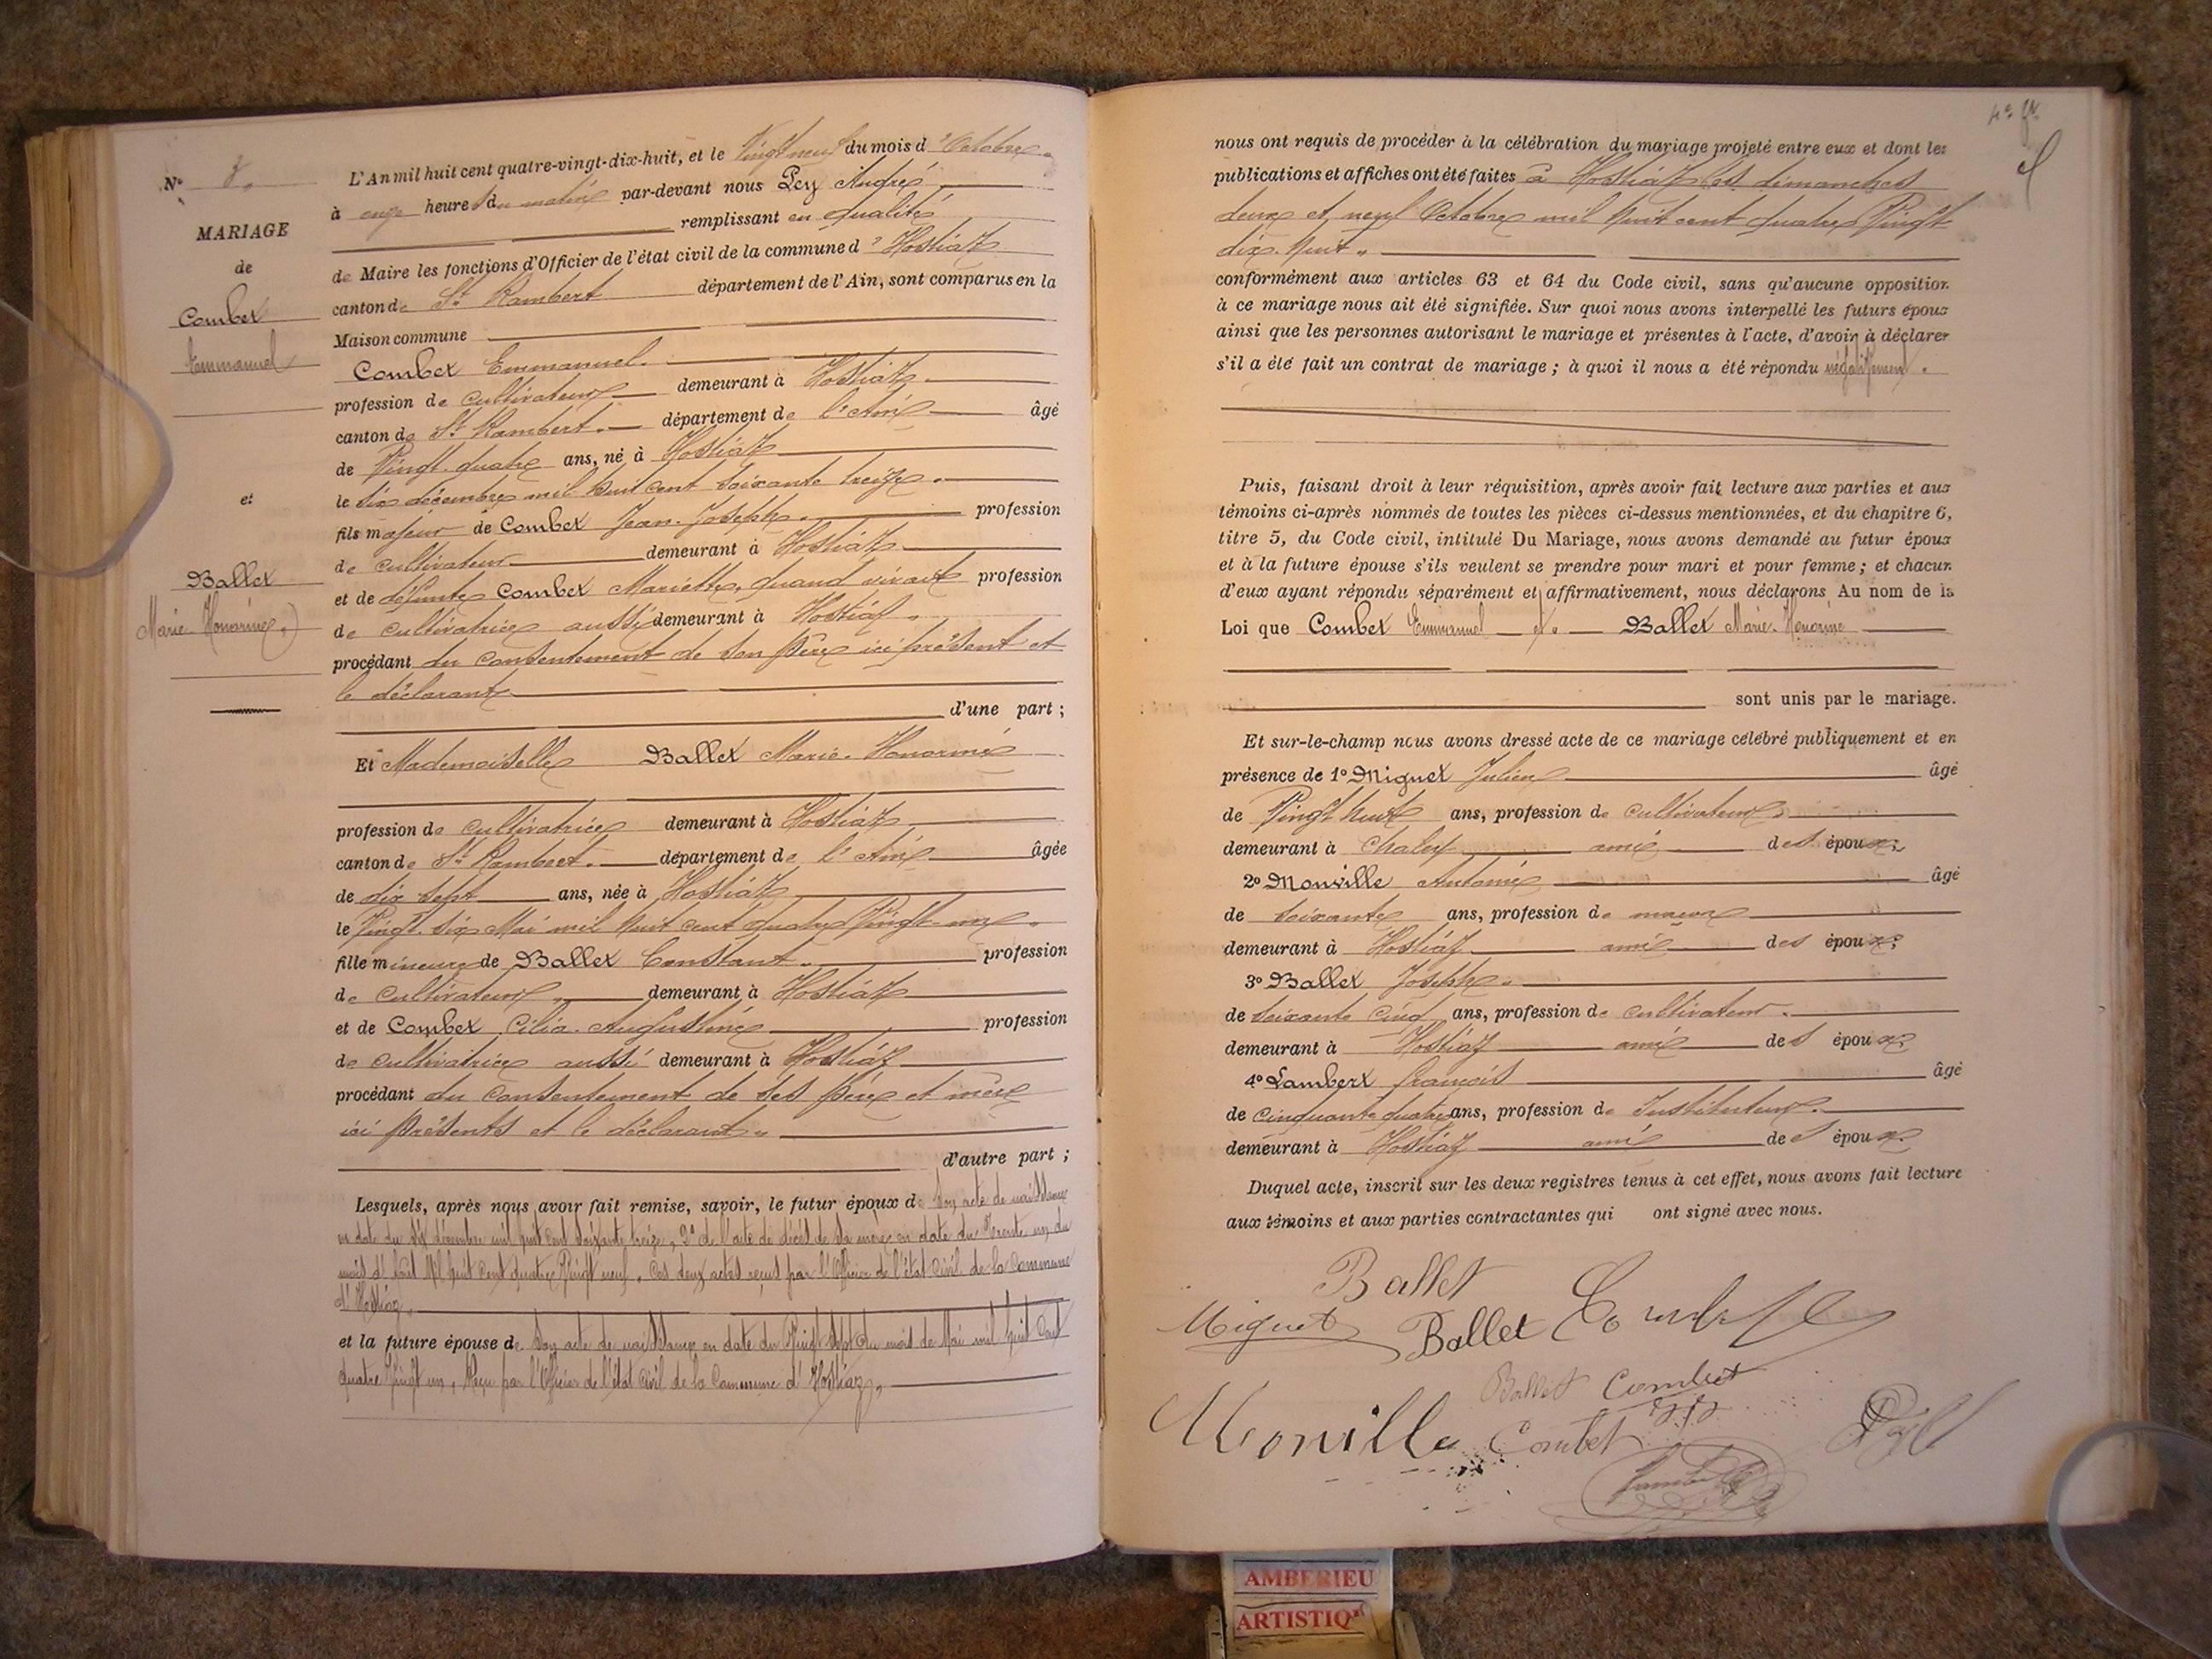 N° 8.
MARIAGE
de
Combet
Emmanuel
et
Ballet
Marie-Honorine
L'An mil huit cent quatre-vingt-dix-huit, et le Vingt neuf du mois d'Octobre
à onze heures du matin par-devant nous Pey André
remplissant en qualité
de Maire les fonctions d'Officier de l'état civil de la commune d'Hostiaz
canton de St Rambert département de l'Ain, sont comparus en la
Maison commune
Combet Emmanuel.
profession de cultivateur demeurant à Hostiaz
canton de St Rambert. département de l'Ain âgé
de Vingt-quatre ans, né à Hostiaz
le six décembre mil huit cent soixante treize.
fils majeur de Combet Jean-Joseph. profession
de cultivateur demeurant à Hostiaz
et de défunte Combet Mariette, quand vivait profession
de cultivatrice aussi demeurant à Hostiaz.
procédant du consentement de son père ici présent et
le déclarant
d'une part ;
Et Mademoiselle Ballet Marie-Honorine
profession de cultivatrice demeurant à Hostiaz
canton de St Rambert. département de l'Ain âgée
de dix sept ans, née à Hostiaz
le Vingt-six Mai mil huit cent quatre Vingt-un.
fille mineure de Ballet Constant. profession
de cultivateur demeurant à Hostiaz
et de Combet Célia-Augustine profession
de cultivatrice aussi demeurant à Hostiaz
procédant du consentement de ses père et mère
ici présents et le déclarant.
d'autre part ;
Lesquels, après nous avoir fait remise, savoir, le futur époux de son acte de naissance
en date du six décembre mil huit cent soixante treize, 2° de l'acte de décès de sa mère en date du trente un du
mois d'Août mil huit cent quatre Vingt neuf. Ces deux actes reçus par l'Officier de l'état civil de la Commune
d'Hostiaz.
et la future épouse de son acte de naissance en date du Vingt sept du mois de Mai mil huit cent
quatre Vingt un, Reçu par l'Officier de l'état civil de la Commune d'Hostiaz.
nous ont requis de procéder à la célébration du mariage projeté entre eux et dont les
publications et affiches ont été faites à Hostiaz les dimanches
deux et neuf Octobre mil huit cent quatre Vingt
dix-huit.
conformément aux articles 63 et 64 du Code civil, sans qu'aucune opposition
à ce mariage nous ait été signifiée. Sur quoi nous avons interpellé les futurs époux
ainsi que les personnes autorisant le mariage et présentes à l'acte, d'avoir à déclarer
s'il a été fait un contrat de mariage ; à quoi il nous a été répondu négativement.
Puis, faisant droit à leur réquisition, après avoir fait lecture aux parties et aux
témoins ci-après nommés de toutes les pièces ci-dessus mentionnées, et du chapitre 6,
titre 5, du Code civil, intitulé Du Mariage, nous avons demandé au futur époux
et à la future épouse s'ils veulent se prendre pour mari et pour femme ; et chacun
d'eux ayant répondu séparément et affirmativement, nous déclarons Au nom de la
Loi que Combet Emmanuel et Ballet Marie-Honorine
sont unis par le mariage.
Et sur-le-champ nous avons dressé acte de ce mariage célébré publiquement et en
présence de 1° Miguet Julien âgé
de Vingt huit ans, profession de cultivateur
demeurant à Chaley ami des époux;
2° Monville Antoine âgé
de soixante ans, profession de maçon
demeurant à Hostiaz ami des époux;
3° Ballet Joseph.
de soixante cinq ans, profession de cultivateur.
demeurant à Hostiaz ami des époux;
4° Lambert françois âgé
de cinquante quatre ans, profession de Instituteur.
demeurant à Hostiaz ami des époux.
Duquel acte, inscrit sur les deux registres tenus à cet effet, nous avons fait lecture
aux témoins et aux parties contractantes qui ont signé avec nous.
Ballet
Miguet Ballet Combet
Ballet Combet
Monville Combet
Lambert
AMBERIEU
ARTISTIQ